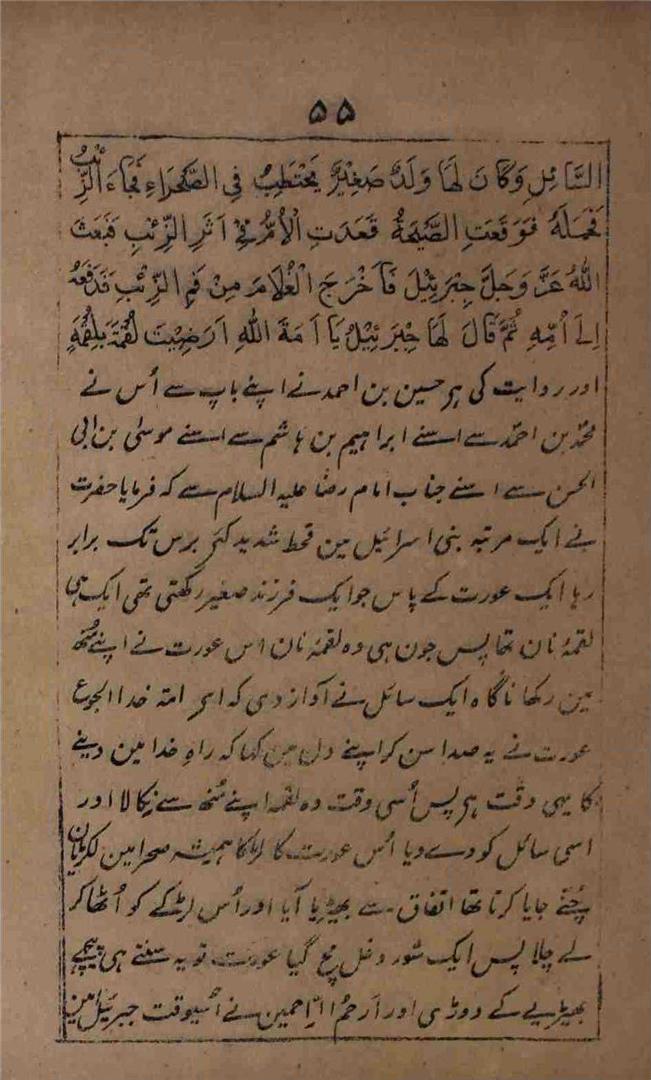 ۵۵
السَّائِلِ وَكَانَ لَهَا وَلَدٌ صَغِيْرٌ يَحْتَطِبُ فِي الصَّحْرَاءِ فَجَاءَ الذِّئْبُ
فَحَمَلَهُ فَوَقَعَتِ الصَّيْحَةُ فَعَدَتِ الْأُمُّ فِيْ اَثَرِ الذِّئْبِ فَبَعَثَ
اللهُ عَزَّ وَجَلَّ جِبْرَئِيْلَ فَاَخْرَجَ الْغُلَامَ مِنْ فَمِ الذِّئْبِ فَدَفَعَهُ
اِلَى اُمِّهِ ثُمَّ قَالَ لَهَا جِبْرَئِيْلُ يَا اَمَةَ اللهِ اَرَضِيْتِ لُقْمَةً بِلُقْمَةٍ
اور روایت کی ہر حسین بن احمد نے اپنے باپ سے اُس نے
محمّد بن احمّد سے اسنے ابراہیم بن ہاشم سے اسنے موسیٰ بن ابی
الحسن سے اسنے جناب امام رضا علیہ السلام سے کہ فرمایا حضرت
نے ایک مرتبہ بنی اسرائیل مین قحط شدید کئی برس تک برابر
رہا ایک عورت کے پاس جو ایک فرزند صغیر رکھتی تھی ایک ہی
لقمۂ نان تھا پس جون ہی وہ لقمۂ نان اس عورت نے اپنے مُنھ
مین رکھا ناگاہ ایک سائل نے آواز دی کہ ای امۃ خدا الجوع
عورت نے یہ صدا سن کر اپنے دل مین کہا کہ راہِ خدا مین دینے
کا یہی وقت ہر پس اُسی وقت وہ لقمہ اپنے مُنھ سے نکالا اور
اسی سائل کو دے دیا اُس عورت کا لڑکا ہمیشہ صحرا مین لکڑیان
چُننے جایا کرتا تھا اتفاق سے بھیڑیا آیا اور اُس لڑکے کو اُٹھا کر
لے چلا پس ایک شور و غل مچ گیا عورت تو یہ سنتے ہی پیچھے
بھیڑیے کے دوڑی اور اَرحمُ الرّاحمین نے اُسیوقت جبرئیل امین